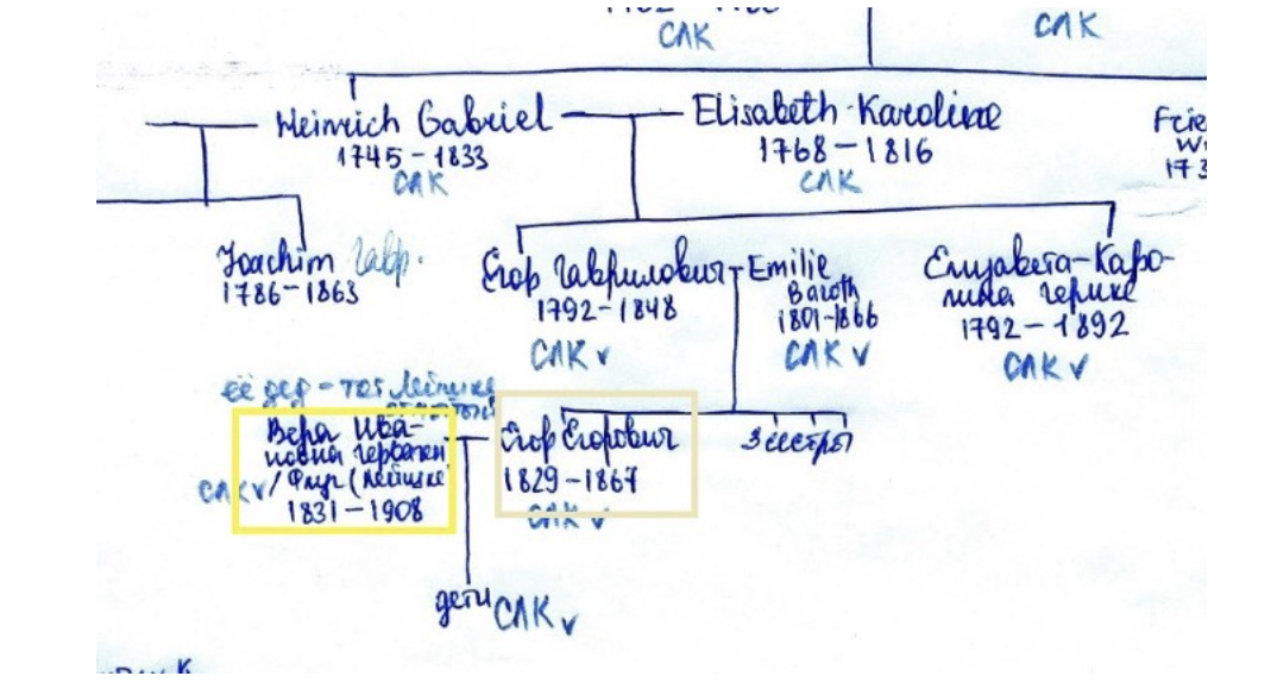 СЛК
СЛК
Heinrich Gabriel
1745 – 1833
СЛК
Elisabeth Karoline
1768 – 1816
СЛК
Frie
W
173
Joachim Гавр.
1786 – 1863
Егор Гаврилович
1792 – 1848
СЛК v
Emilie
Baroth
1801-1866
СЛК v
Елизавета-Каро-
лина Герике
1792 – 1892
СЛК v
её дед – тот Лейцике
Вера Ива-
новна
СЛК v / Фидр (Лейцике
1831 – 1908
Егор Егорович
1829 – 1867
СЛК v
3 сестры
дети СЛК v